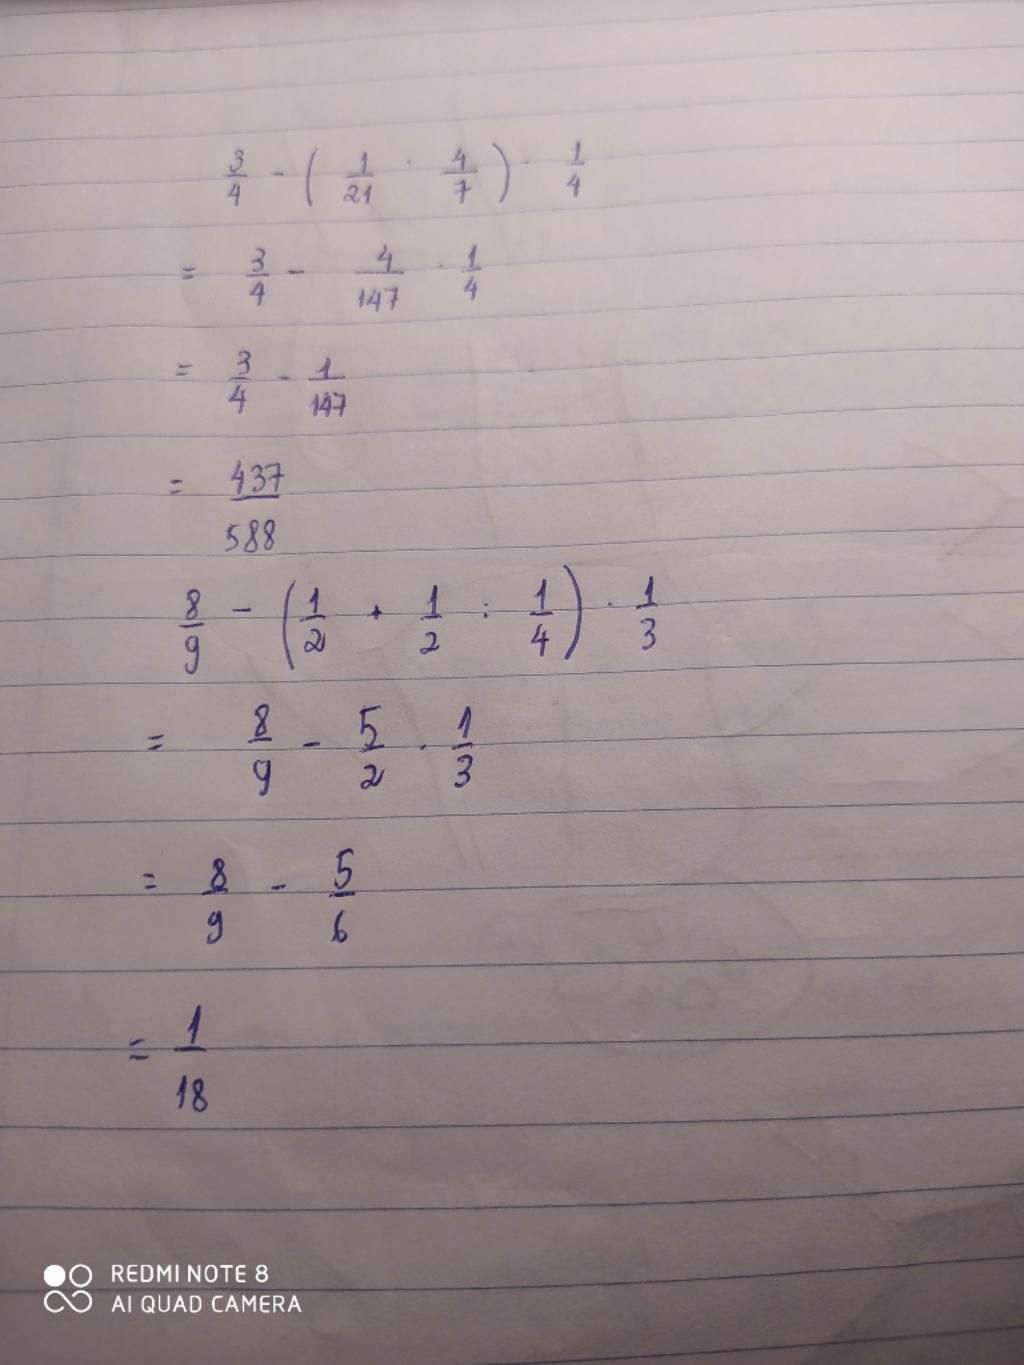 3/4 - ( 1/21 · 4/7 ) · 1/4
= 3/4 - 4/147 · 1/4
= 3/4 - 1/147
= 437/588
8/9 - ( 1/2 + 1/2 : 1/4 ) · 1/3
= 8/9 - 5/2 · 1/3
= 8/9 - 5/6
= 1/18
REDMI NOTE 8
AI QUAD CAMERA